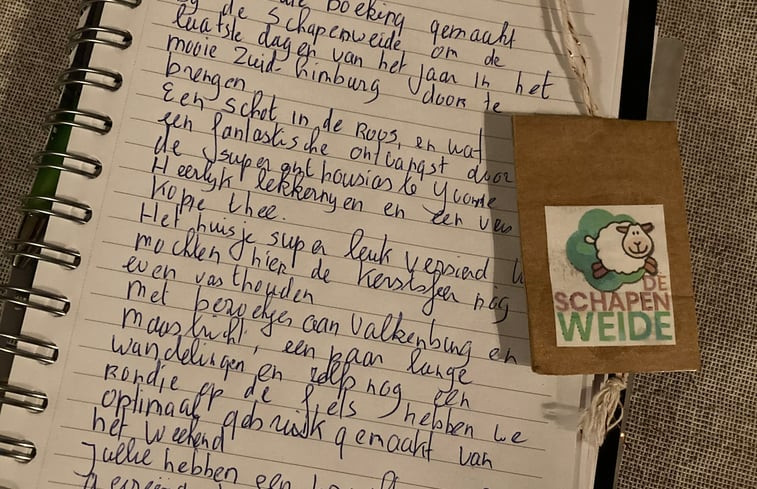 boeking gemaakt
de Schapenweide om de
laatste dagen van het jaar in het
mooie Zuid-Limburg door te
brengen
Een schot in de Roos, en wat
een fantastische ontvangst door
de super enthousiaste Yvonne
Heerlijk lekkernyen en een
kopje thee.
Het huisje super leuk versierd
mochten hier de kerstsfeer nog
even vasthouden
Met bezoekjes aan Valkenburg en
maastricht, een paar lange
wandelingen en zelfs nog een
Rondje op de fiets hebben we
optimaal gebruik gemaakt van
het weekend
Jullie hebben een
DE
SCHAPEN
WEIDE